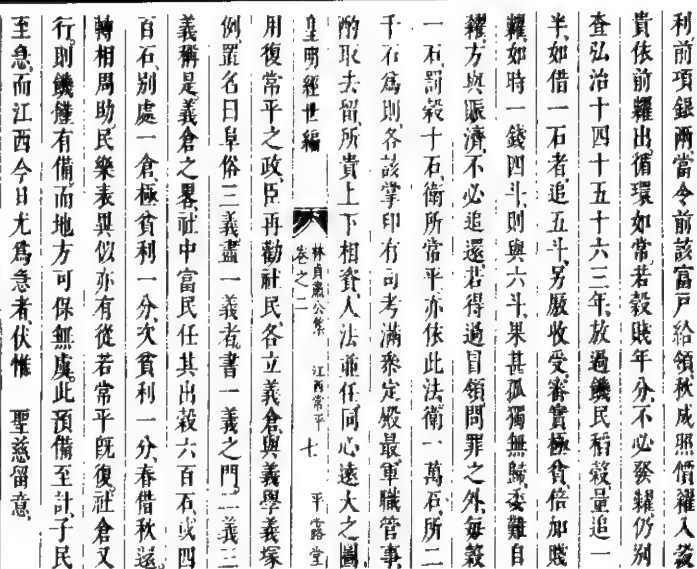 利前項銀兩當令前該富戶給領秋成照價糴入該
貴依前糶出循環如常若穀賤年分不必發糶仍別
查弘治十四十五十六三年放過饑民稻穀量追一
半如借一石者追五斗另廒收受審實極貧倍加賤
糶如時一錢四斗則與六斗果甚孤獨無歸委難自
糴方與賑濟不必追還若得過冒領問罪之外每穀
一石罰穀十石衛所常平亦依此法衛一萬石所二
千石爲則各該掌印有司考滿叅定殿最軍職管事
酌取去留所貴上下相資人法兼任同心遠大之圖
皇明經世編
林貞肅公集
卷之二
江西常平
七
平露堂
用復常平之政臣再勸社民各立義倉與義學義塚
例置名曰阜俗三義盡一義者書一義之門二義三
義稱是義倉之畧社中富民任其出穀六百石或四
百石別處一倉極貧利一分次貧利一分春借秋還
轉相周助民樂表異似亦有從若常平既復社倉又
行則饑饉有備而地方可保無虞此預備至計子民
至急而江西今日尤爲急者伏惟 聖慈留意